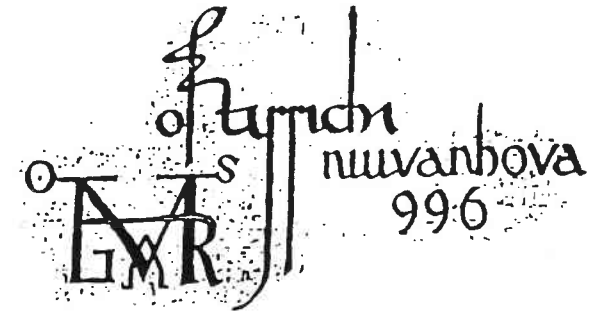 oſtarrichi
niuvanhova
996